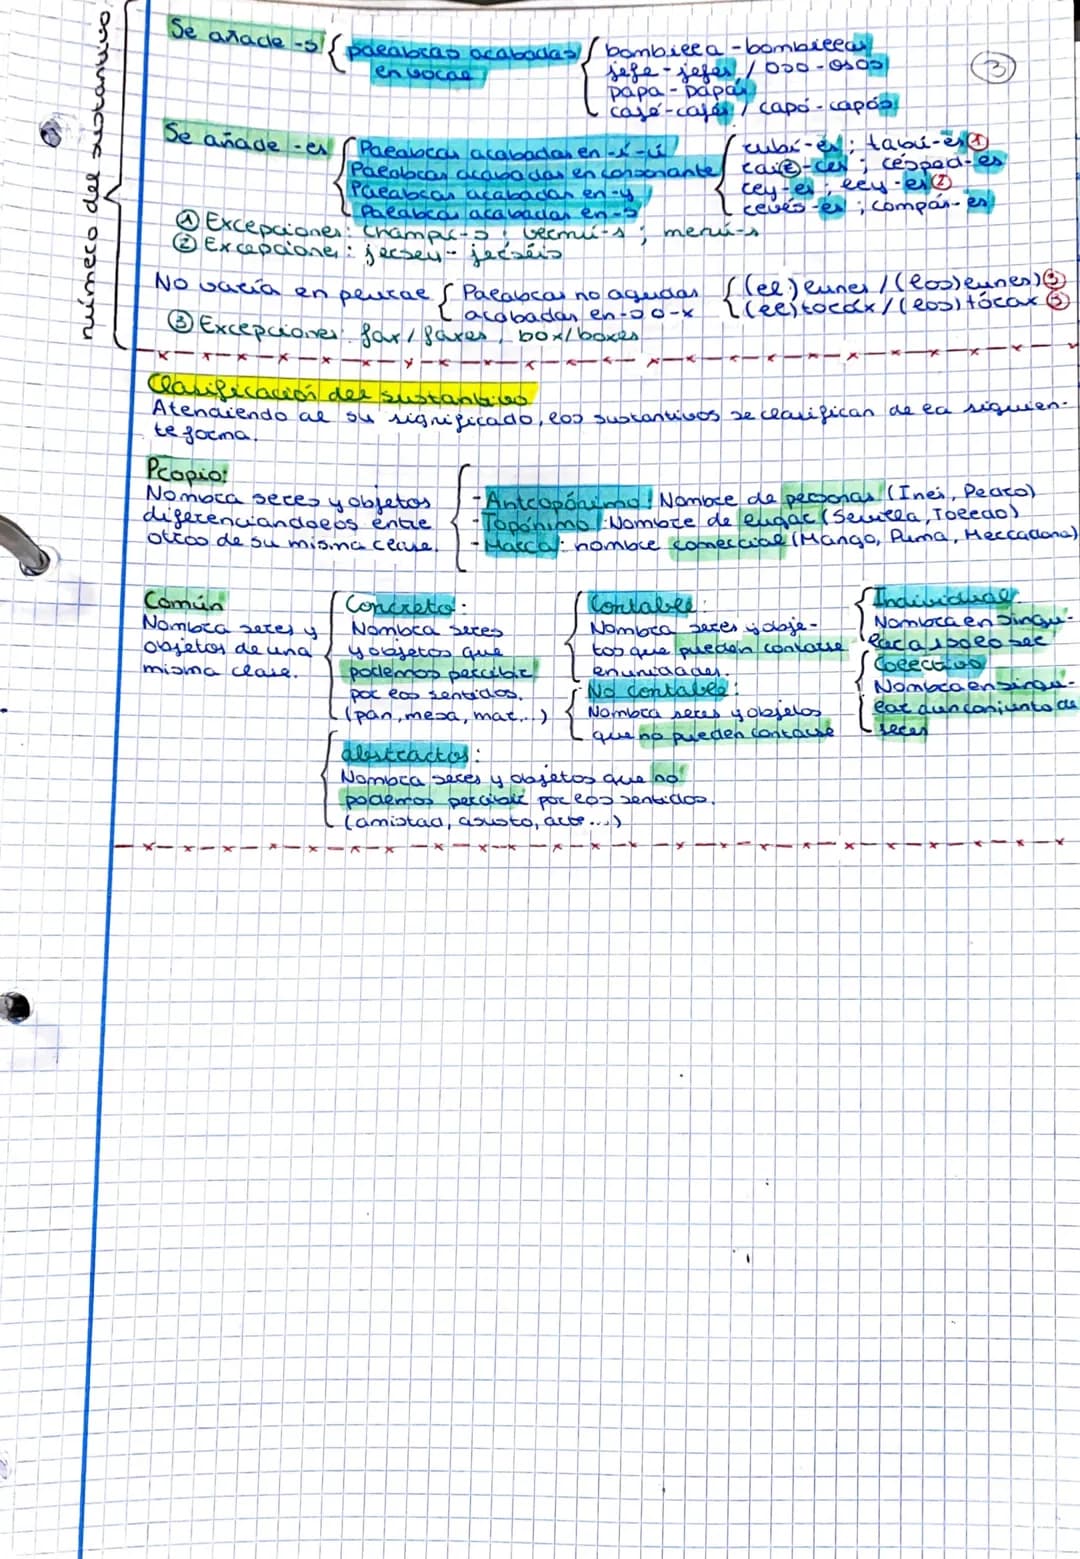 número del sustantivo
Se añade -s
palabras acabadas
en vocal
bombilla - bombillas
jefe - jefes / oso - osos
papa - papás
café - cafés / capó - capós
3
Se añade -es
Palabras acabadas en -í -ú
Palabras acabadas en consonante
Palabras acabadas en -y
Palabras acabadas en -s
rubí-es; tabú-es ①
-ces; césped-es
rey-es; ley-es ②
revés-es; compás-es
① Excepciones: champú-s; vermú-s; menú-s
② Excepciones: jersey - jerséis
No varía en plural
Palabras no agudas
acabadas en -s o -x
(el) lunes / (los) lunes) ③
(el) tórax / (los) tórax ③
③ Excepciones: fax / faxes, box/boxes
Clasificación del sustantivo
Atendiendo al su significado, los sustantivos se clasifican de la siguien-
te forma.
Propio:
Nombra seres y objetos
diferenciandolos entre
otros de su misma clase.
- Antropónimo: Nombre de personas (Inés, Pedro)
- Topónimo: Nombre de lugar (Sevilla, Toledo)
- Marca: nombre comercial (Mango, Puma, Mercadona)
Común
Nombra seres y
objetos de una
misma clase.
Concreto:
Nombra seres
y objetos que
podemos percibir
por los sentidos.
(pan, mesa, mar...)
abstractos:
Nombra seres y objetos que no
podemos percibir por los sentidos.
(amistad, susto, arte...)
Contable:
Nombra seres y obje-
tos que pueden contarse
en unidades.
No contable:
Nombra seres y objetos
que no pueden contarse
Individual
Nombra en singu-
lar a 1 solo ser
Colectivo
Nombra en singu-
lar a un conjunto de
seres